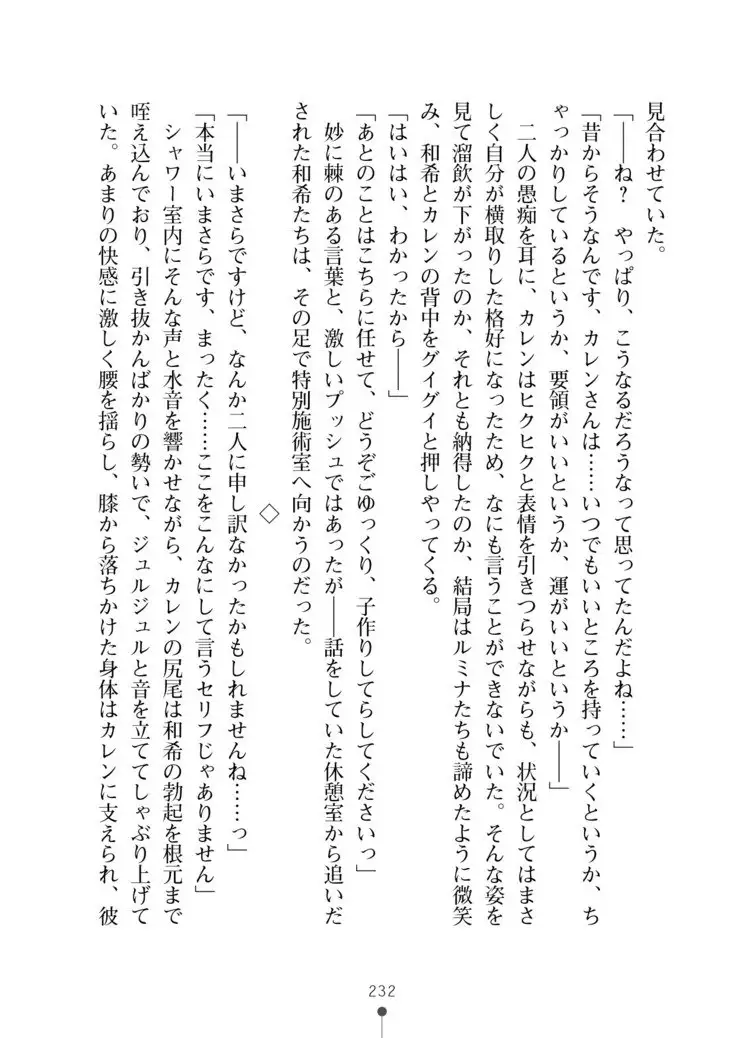 見合わせていた。
「――ね？　やっぱり、こうなるだろうなって思ってたんだよね……」
「昔からそうなんです、カレンさんは……いつでもいいところを持っていくというか、ち
ゃっかりしているというか、要領がいいというか、運がいいというか――」
　二人の愚痴を耳に、カレンはヒクヒクと表情を引きつらせながらも、状況としてはまさ
しく自分が横取りした格好になったため、なにも言うことができないでいた。そんな姿を
見て溜飲が下がったのか、それとも納得したのか、結局はルミナたちも諦めたように微笑
み、和希とカレンの背中をグイグイと押しやってくる。
「はいはい、わかったから――」
「あとのことはこちらに任せて、どうぞごゆっくり、子作りしてらしてくださいっ」
　妙に棘のある言葉と、激しいプッシュではあったが――話をしていた休憩室から追いだ
された和希たちは、その足で特別施術室へ向かうのだった。
◇
「――いまさらですけど、なんか二人に申し訳なかったかもしれませんね……っ」
「本当にいまさらです、まったく……ここをこんなにして言うセリフじゃありません」
　シャワー室内にそんな声と水音を響かせながら、カレンの尻尾は和希の勃起を根元まで
咥え込んでおり、引き抜かんばかりの勢いで、ジュルジュルと音を立ててしゃぶり上げて
いた。あまりの快感に激しく腰を揺らし、膝から落ちかけた身体はカレンに支えられ、彼
232